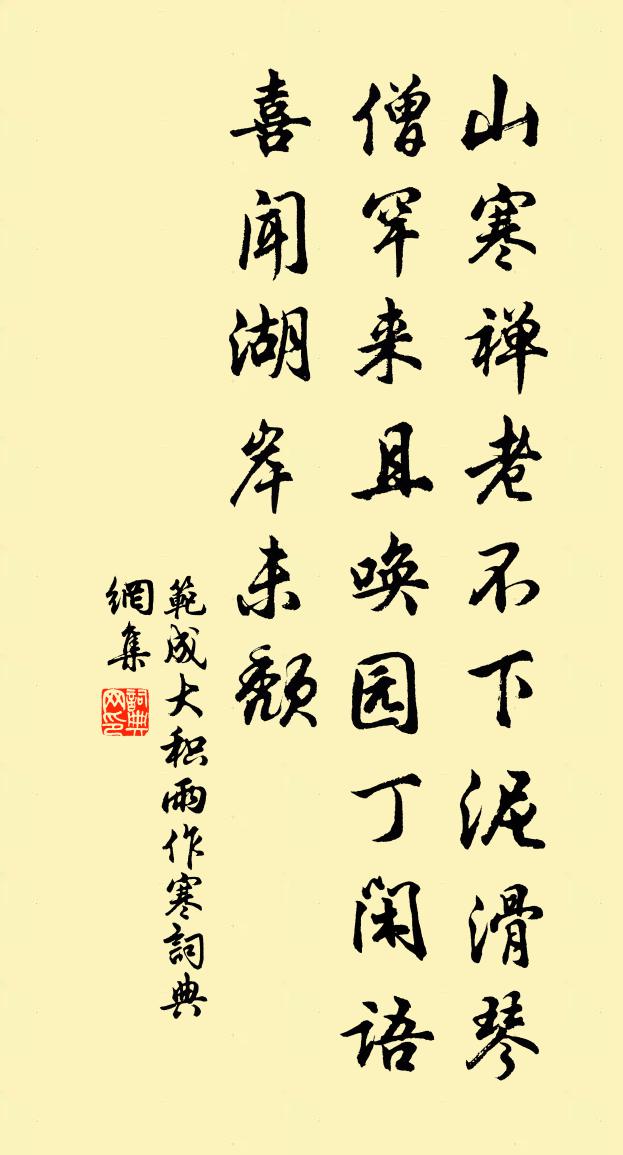 山寒禅老不下泥滑琴
僧罕来且唤园丁闲语
喜闻湖岸未颓
範成大积雨作寒詞典
網集
詞典
网印